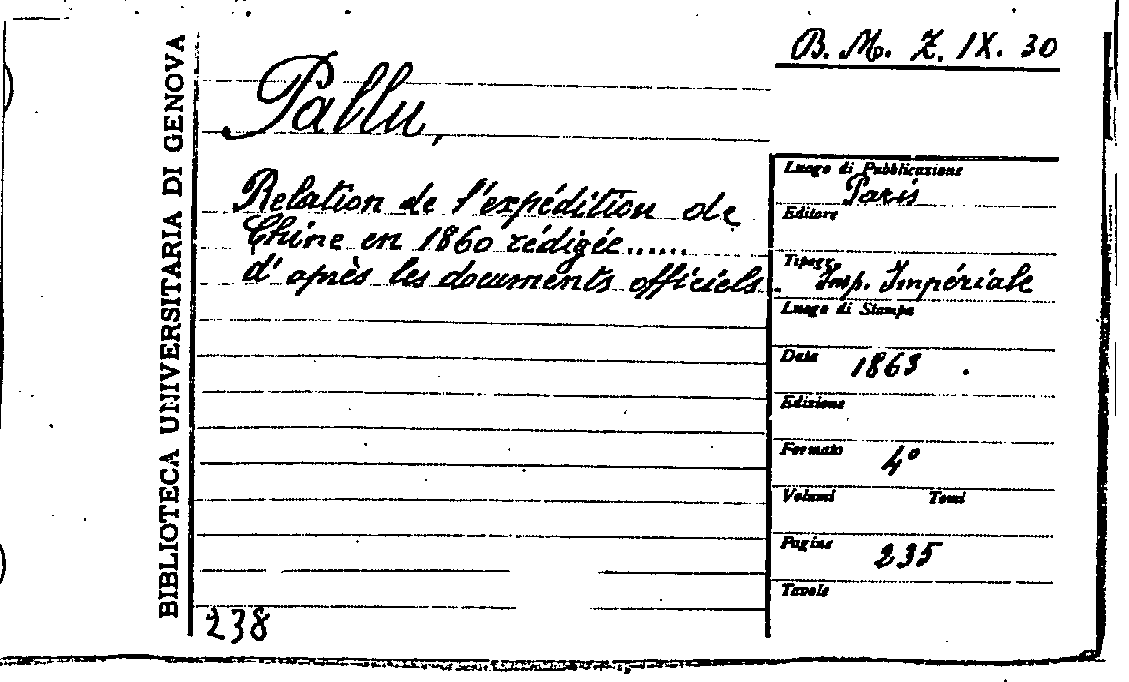 B. M. Z. IX. 30
BIBLIOTECA UNIVERSITARIA DI GENOVA
Pallu,
Relation de l'expédition de
Chine en 1860 rédigée......
d'après les documents officiels.
Luogo di Pubblicazione
Paris
Editore
Tipogr.
Imp. Impériale
Luogo di Stampa
Data 1863.
Edizione
Formato 4°
Volumi Tomi
Pagine 235
Tavole
238